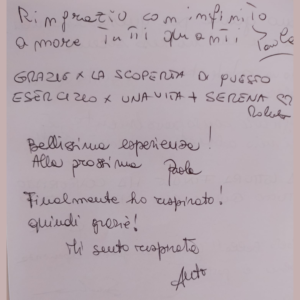 Ringrazio con infinito
amore tutti quanti Paola
GRAZIE X LA SCOPERTA DI QUESTO
ESERCIZIO X UNA VITA + SERENA ♡
Roberta
Bellissima esperienza!
Alla prossima Paola
Finalmente ho respirato!
quindi grazie!
Mi sento respirata